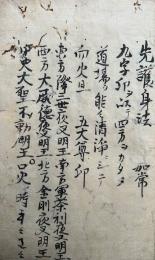 先護身法 如常
九字ヲ以テ四方ヲカタメ
道場ヲ能々清浄ニシテ
向火日 五大尊印
東方降三世夜叉明王南方軍荼利夜叉明王
西方大威徳夜叉明王北方金剛夜叉明王
中央大聖不動明王